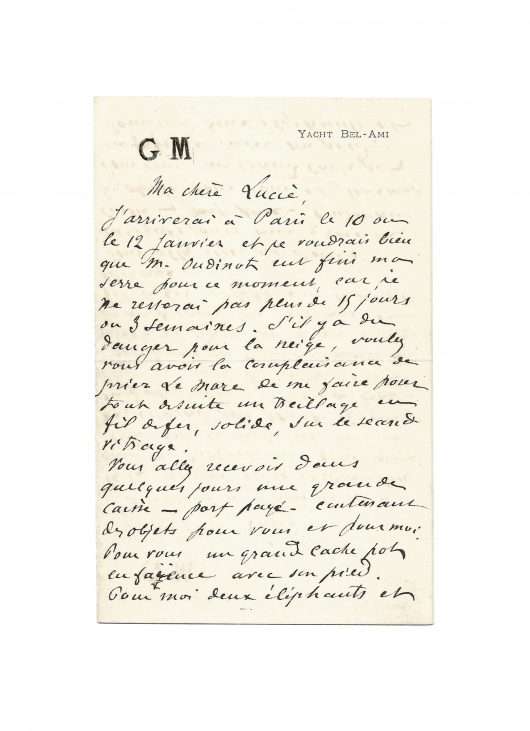 YACHT BEL-AMI
G M
Ma chère Lucie,
J'arriverai à Paris le 10 ou
le 12 Janvier et je voudrais bien
que M. Oudinot eut fini ma
serre pour ce moment, car je
ne resterai pas plus de 15 jours
ou 3 semaines. S'il y a du
danger pour la neige, voulez
vous avoir la complaisance de
prier Le Mare de me faire poser
tout de suite un treillage en
fil de fer, solide, sur le grand
vitrage.
Vous allez recevoir dans
quelques jours une grande
caisse — port payé — contenant
des objets pour vous et pour moi.
Pour vous un grand cache pot
en faïence avec son pied.
Pour moi deux éléphants et